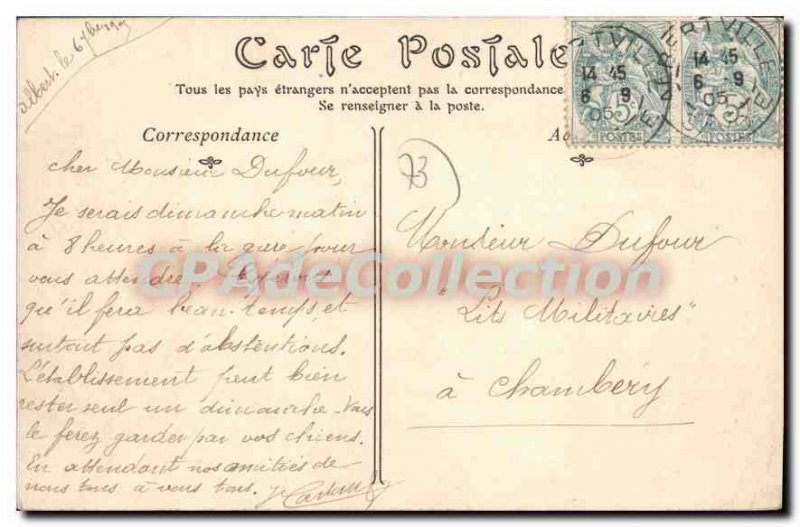 Albert. le
Carte Postale
Tous les pays étrangers n'acceptent pas la correspondance
Se renseigner à la poste.
Correspondance
cher Monsieur Dufour,
Je serais dimanche matin
à 8 heures à la gare pour
vous attendre.
qu'il fera beau temps, et
surtout pas d'abstentions.
L'établissement peut bien
rester seul un dimanche. Vous
le ferez garder par vos chiens.
En attendant nos amitiés de
nous tous à vous tous.
73
Monsieur Dufour
"Lits Militaires"
à Chambéry
14 45
6 9
05
5c
POSTES
14 45
6 9
05
5c
POSTES
CPAdeCollection